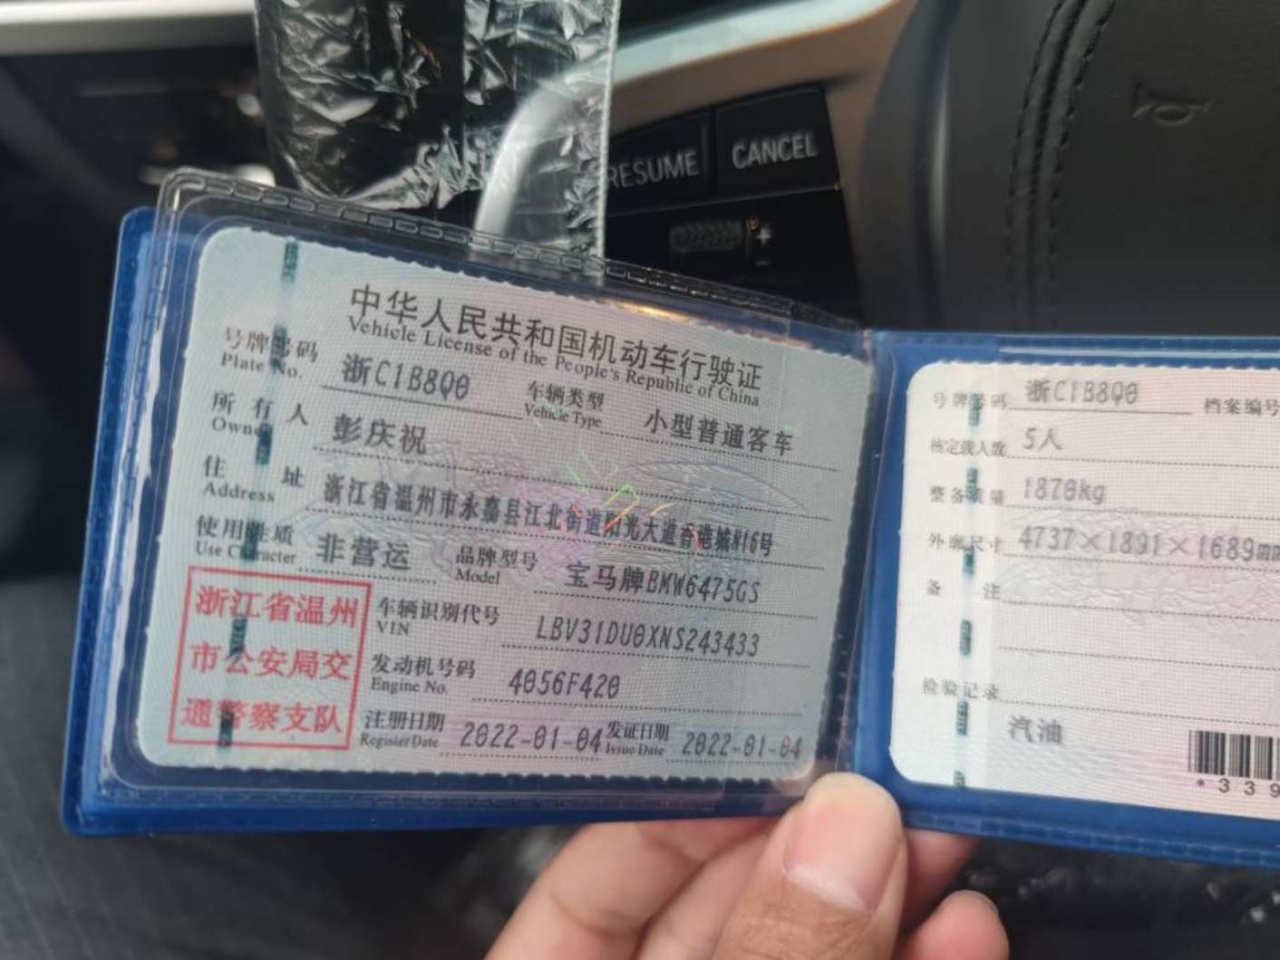 RESUME
CANCEL
+
-
中华人民共和国机动车行驶证
Vehicle License of the People's Republic of China
号牌号码 浙C1B8Q0 车辆类型 小型普通客车
Plate No. Vehicle Type
所有人 彭庆祝
Owner
住址 浙江省温州市永嘉县江北街道阳光大道香港城H16号
Address
使用性质 非营运 品牌型号 宝马牌BMW6475GS
Use Character Model
浙江省温州
市公安局交
通警察支队
车辆识别代号 LBV31DU0XNS243433
VIN
发动机号码 4056F420
Engine No.
注册日期 2022-01-04 发证日期 2022-01-04
Register Date Issue Date
号牌号码 浙C1B8Q0 档案编号
核定载人数 5人
整备质量 1870kg
外廓尺寸 4737×1891×1689mm
备注
检验记录
汽油
*339